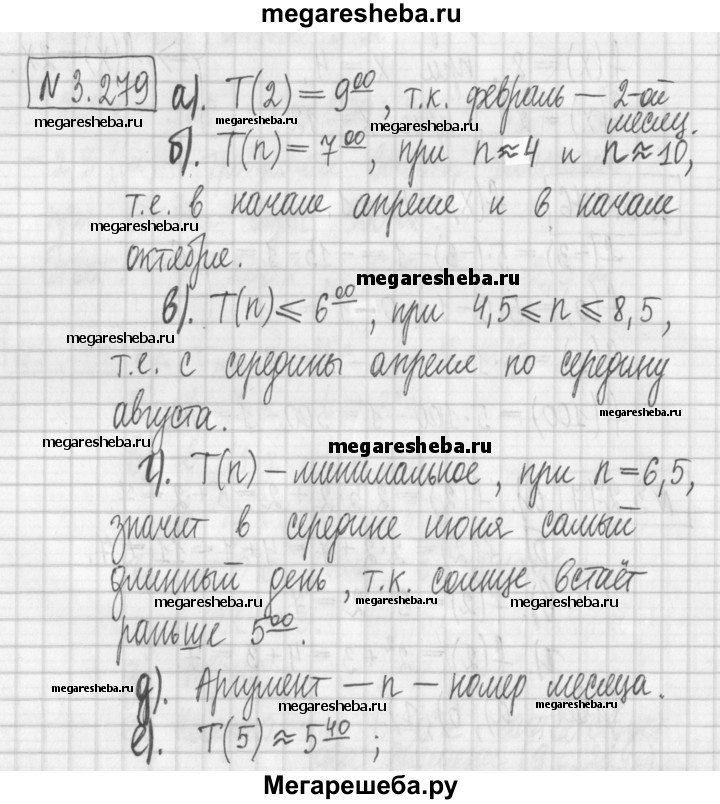 megaresheba.ru
N 3.279 а). T(2) = 9⁰⁰, т.к. февраль — 2-ой
megaresheba.ru megaresheba.ru месяц. megaresheba.ru
б). T(n) = 7⁰⁰, при n ≈ 4 и n ≈ 10,
т.е. в начале апреля и в начале
megaresheba.ru megaresheba.ru
октября.
megaresheba.ru
в). T(n) ⩽ 6⁰⁰, при 4,5 ⩽ n ⩽ 8,5,
megaresheba.ru
т.е. с середины апреля по середину
августа.
megaresheba.ru megaresheba.ru megaresheba.ru
г). T(n) — минимальное, при n = 6,5,
значит в середине июня самый
длинный день, т.к. солнце встаёт
megaresheba.ru megaresheba.ru megaresheba.ru
раньше 5⁰⁰.
д). Аргумент — n — номер месяца.
megaresheba.ru megaresheba.ru megaresheba.ru
е). T(5) ≈ 5⁴⁰ ;
Мегарешеба.ру